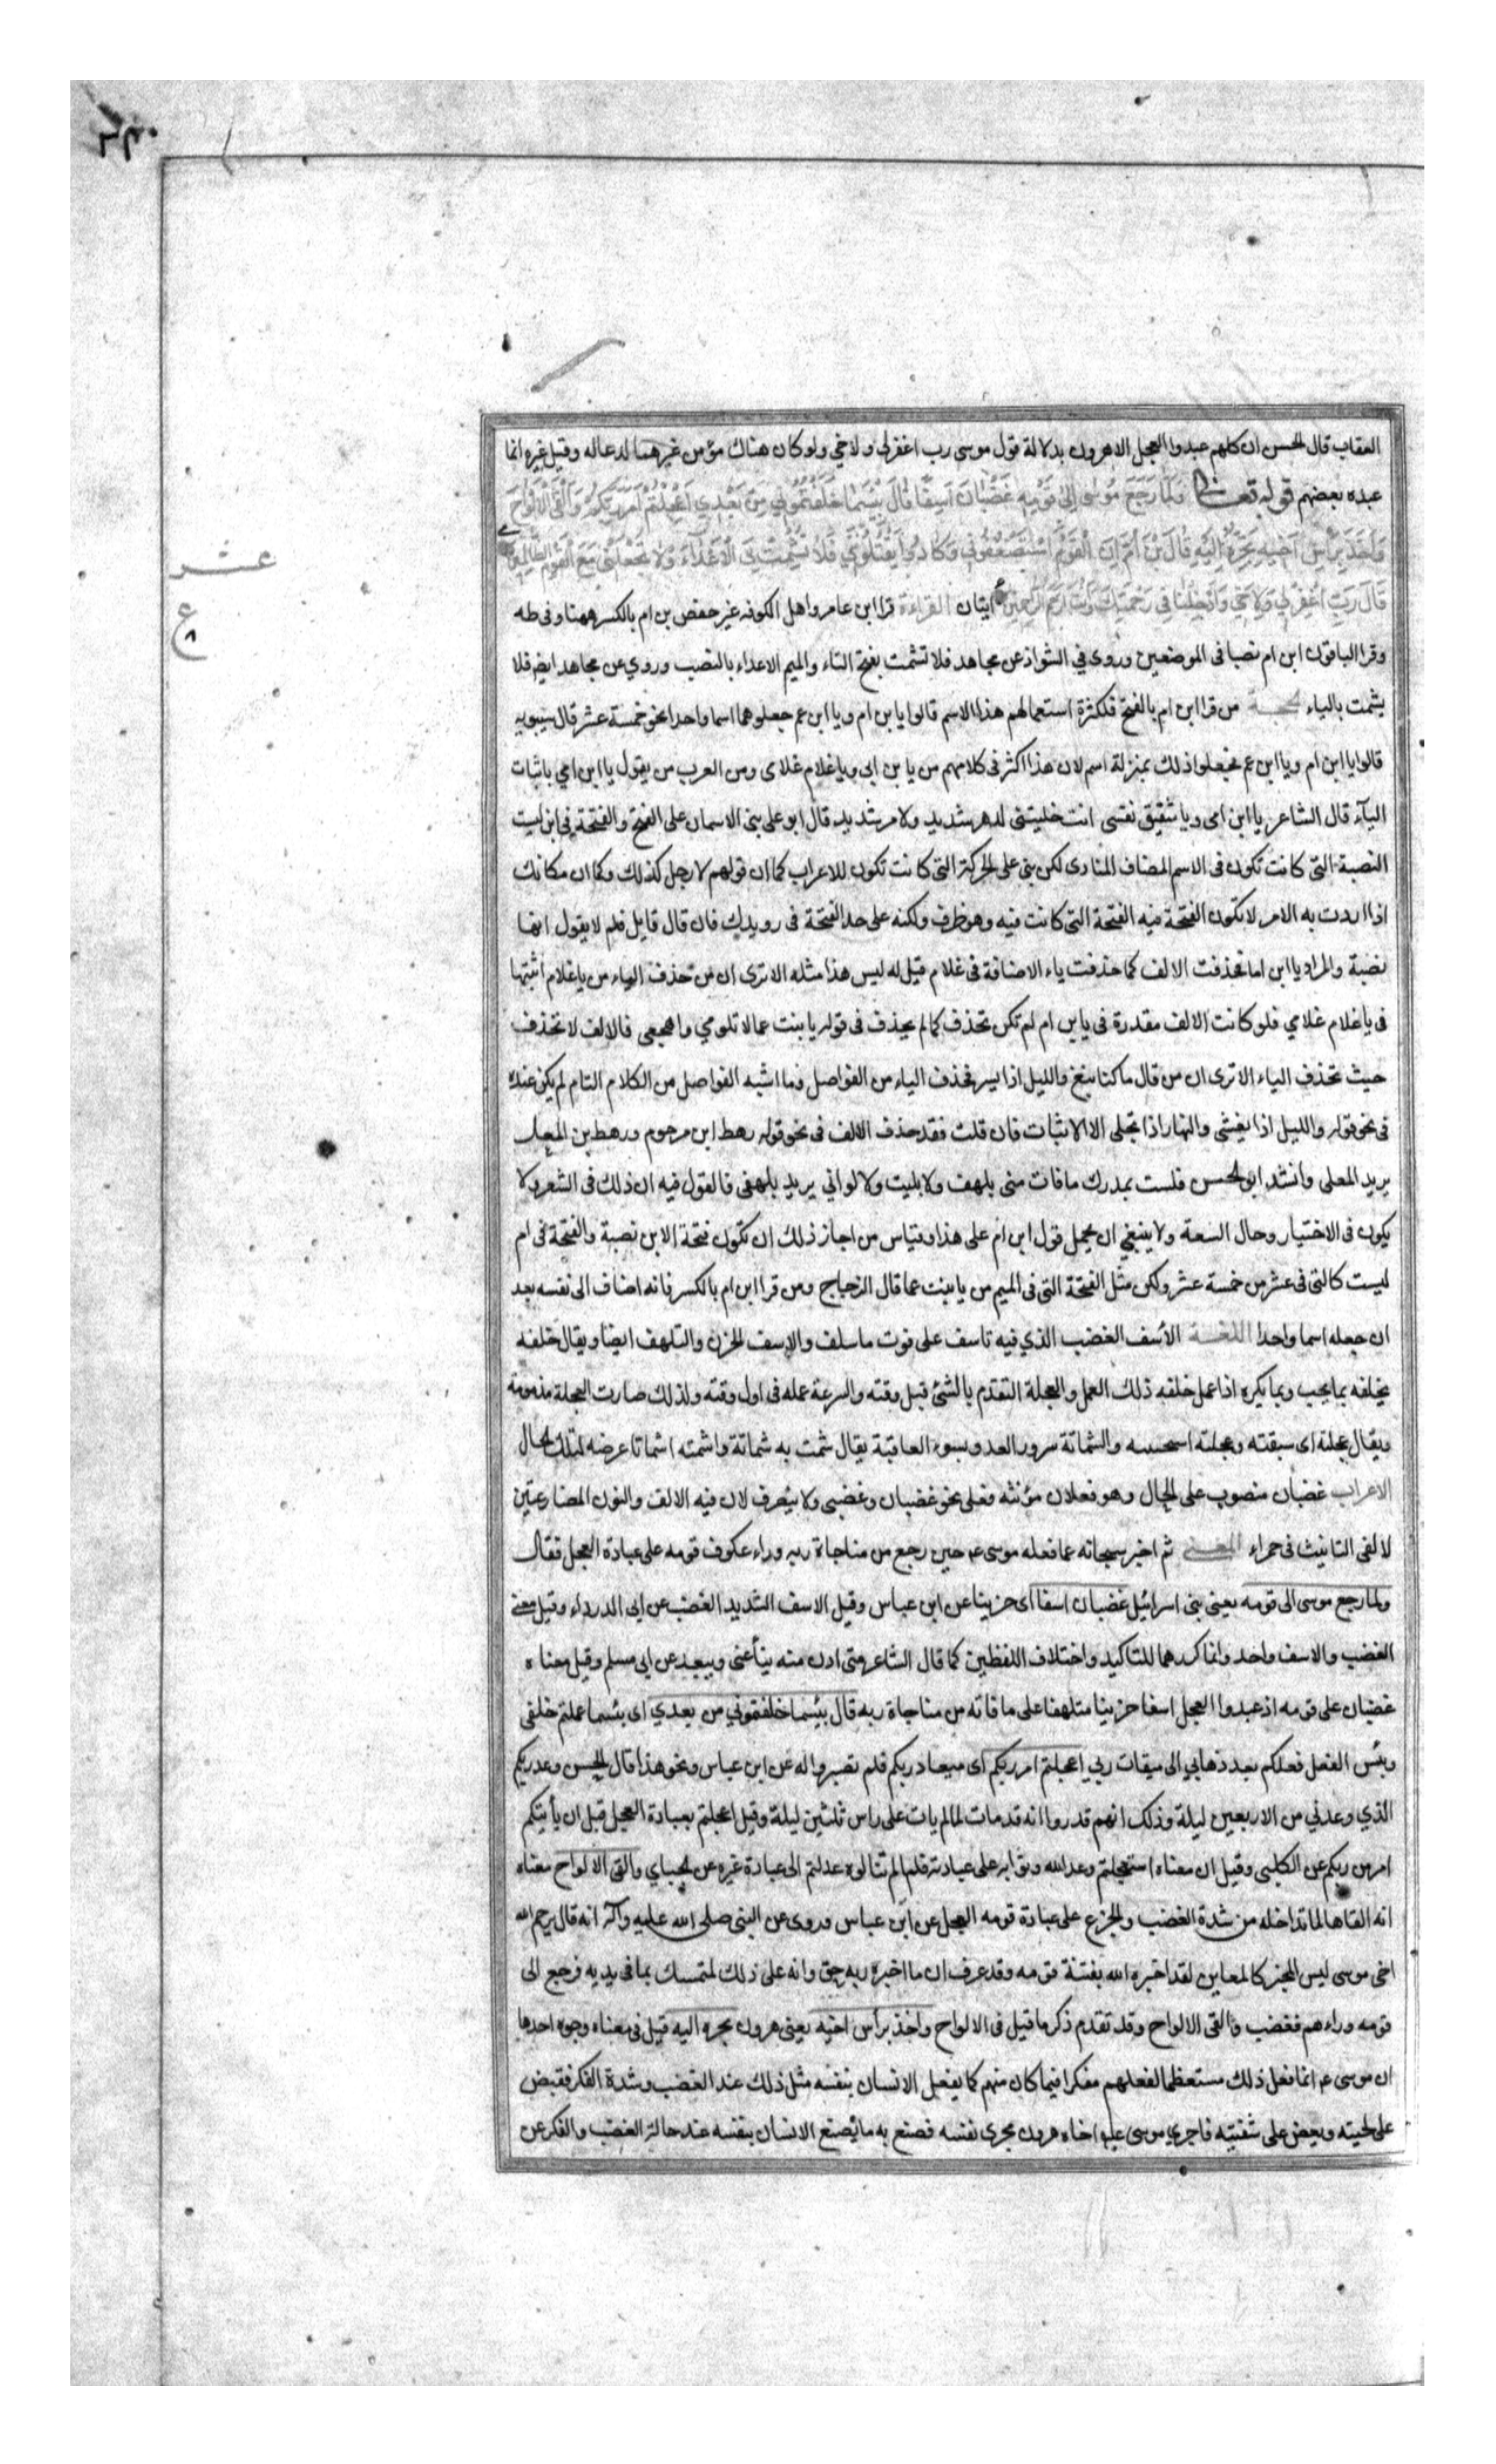 العقاب قال الحسن ان كلهم عبدوا العجل الا هرون بدلالة قول موسى رب اغفر لي ولاخي ولو كان هناك مؤمن غيرهما لدعا له وقيل غيره انما
عبده بعضهم قوله تعالى وَلَمَّا رَجَعَ مُوسَى إِلَى قَوْمِهِ غَضْبَانَ أَسِفًا قَالَ بِئْسَمَا خَلَفْتُمُونِي مِنْ بَعْدِي أَعَجِلْتُمْ أَمْرَ رَبِّكُمْ وَأَلْقَى الْأَلْوَاحَ
وَأَخَذَ بِرَأْسِ أَخِيهِ يَجُرُّهُ إِلَيْهِ قَالَ بْنَ أُمَّ إِنَّ الْقَوْمَ اسْتَضْعَفُونِي وَكَادُوا يَقْتُلُونَنِي فَلَا تُشْمِتْ بِيَ الْأَعْدَاءَ وَلَا تَجْعَلْنِي مَعَ الْقَوْمِ الظَّالِمِينَ
قَالَ رَبِّ اغْفِرْ لِي وَلِأَخِي وَأَدْخِلْنَا فِي رَحْمَتِكَ وَأَنْتَ أَرْحَمُ الرَّاحِمِينَ ايتان القراءة قرا ابن عامر واهل الكوفه غير حفص بن ام بالكسر ههنا وفي طه
وقرا الباقون ابن ام نصبا في الموضعين وروى في الشواذ عن مجاهد فلا تشمت بفتح التاء والميم الاعداء بالنصب وروي عن مجاهد ايض فلا
يشمت بالياء الحجة من قرا ابن ام بالفتح فلكثرة استعمالهم هذا الاسم قالوا يا بن ام ويا ابن عم جعلوهما اسما واحدا نحو خمسة عشر قال سيبويه
قالوا يا ابن ام ويا ابن عم فجعلوا ذلك بمنزلة اسم لان هذا اكثر في كلامهم من يا بن ابي ويا غلام غلامى ومن العرب من يقول يا ابن امي باثبات
الياء قال الشاعر يا ابن امى ويا شقيق نفسى انت خليتنى لدهر شديد ولامر شديد قال ابو على بنى الاسمان على الفتح والفتحة في ابن ليست
النصبة التى كانت تكون فى الاسم المضاف المنادى لكن بنى على الحركة التى كانت تكون للاعراب كما ان قولهم لا رجل كذلك وكما ان مكانك
اذا اردت به الامر لا تكون الفتحة فيه الفتحة التى كانت فيه وهو ظرف ولكنه على حد الفتحة فى رويدك فان قال قايل فلم لا يقول انها
نصبة والمراد يا ابن اما فحذفت الالف كما حذفت ياء الاضافة فى غلام قيل له ليس هذا مثله الا ترى ان من حذف الياء من يا غلام اثبتها
فى يا غلام غلامي فلو كانت الالف مقدرة فى يا بن ام لم تكن تحذف كما لم يحذف فى قوله يا بنت عما لا تلومي واهجعى فالالف لا تحذف
حيث تحذف الياء الا ترى ان من قال ما كنا نبغ والليل اذا يسر فحذف الياء من الفواصل وما اشبه الفواصل من الكلام التام لم يكن عنده
فى نحو قوله والليل اذا يغشى والنهار اذا تجلى الا الاثبات فان قلت فقد حذف الالف فى نحو قوله رهط ابن مرحوم ورهط بن المعل
يريد المعلى وانشد ابو الحسن فلست بمدرك ما فات منى بلهف ولا بليت ولا لواني يريد بلهفى فالقول فيه ان ذلك فى الشعر ولا
يكون فى الاختيار وحال السعة ولا ينبغي ان يحمل قول ابن ام على هذا وقياس من اجاز ذلك ان تكون فتحة الابن نصبة والفتحة فى ام
ليست كالتى فى عشر من خمسة عشر ولكن مثل الفتحة التى فى الميم من يا بنت عما قال الزجاج ومن قرا ابن ام بالكسر فانه اضاف الى نفسه بعد
ان جعله اسما واحدا اللغة الأسف الغضب الذي فيه تاسف على فوت ما سلف والاسف الحزن والتلهف ايضا ويقال خلفه
يخلفه بما يحب وبما يكره اذا عمل خلفه ذلك العمل والعجلة التقدم بالشئ قبل وقته والسرعة عمله فى اول وقته ولذلك صارت العجلة مذمومة
ويقال عجلته اى سبقته وعجلته والشماتة سرور العدو بسوء العاقبة يقال شمت به شماتة واشمته اشماتا عرضه لتلك الحال
الاعراب غضبان منصوب على الحال وهو فعلان مؤنثه فعلى نحو غضبان وغضبى ولا ينصرف لان فيه الالف والنون المضارعتين
لالفى التانيث فى حمراء المعنى ثم اخبر سبحانه عما فعله موسى ع حين رجع من مناجاة ربه وراء عكوف قومه على عبادة العجل فقال
ولما رجع موسى الى قومه يعنى بنى اسرائيل غضبان اسفا اى حزينا عن ابن عباس وقيل الاسف الشديد الغضب عن ابى الدرداء وقيل معنى
الغضب والاسف واحد وانما كررهما للتاكيد واختلاف اللفظين كما قال الشاعر متى ادن منه ينأ عنى ويبعد عن ابى مسلم وقيل معناه
غضبان على قومه اذ عبدوا العجل اسفا حزينا متلهفا على ما فاته من مناجاة ربه قال بئسما خلفتموني من بعدي اى بئسما عملتم خلفى
وبئس الفعل فعلكم بعد ذهابي الى ميقات ربي اعجلتم امر ربكم اى ميعاد ربكم فلم تصبروا له عن ابن عباس ونحو هذا قال الحسن وعد ربكم
الذي وعدني من الاربعين ليلة وذلك انهم قدروا انه قد مات لما لم يات على راس ثلثين ليلة وقيل اعجلتم بعبادة العجل قبل ان يأتيكم
امر من ربكم عن الكلبى وقيل ان معناه استعجلتم وعد الله وثوابه على عبادته فلما لم تنالوه عدلتم الى عبادة غيره عن الجبائي والقى الالواح معناه
انه القاها لما تداخله من شدة الغضب والجزع على عبادة قومه العجل عن ابن عباس وروى عن النبى صلى الله عليه وآله انه قال يرحم الله
اخى موسى ليس المخبر كالمعاين لقد اخبره الله بفتنة قومه وقد عرف ان ما اخبره ربه حق وانه على ذلك لمتمسك بما فى يديه فرجع الى
قومه وراءهم فغضب والقى الالواح وقد تقدم ذكر ما قيل فى الالواح واخذ برأس اخيه يعنى هرون يجره اليه قيل فى معناه وجوه احدها
ان موسى ع انما فعل ذلك مستعظما لفعلهم مفكرا فيما كان منهم كما يفعل الانسان بنفسه مثل ذلك عند الغضب وشدة الفكر فقبض
على لحيته ويعض على شفتيه فاجري موسى عليه اخاه هرون مجرى نفسه فصنع به ما يصنع الانسان بنفسه عند حالة الغضب والفكر عن
عشر
ع
٨